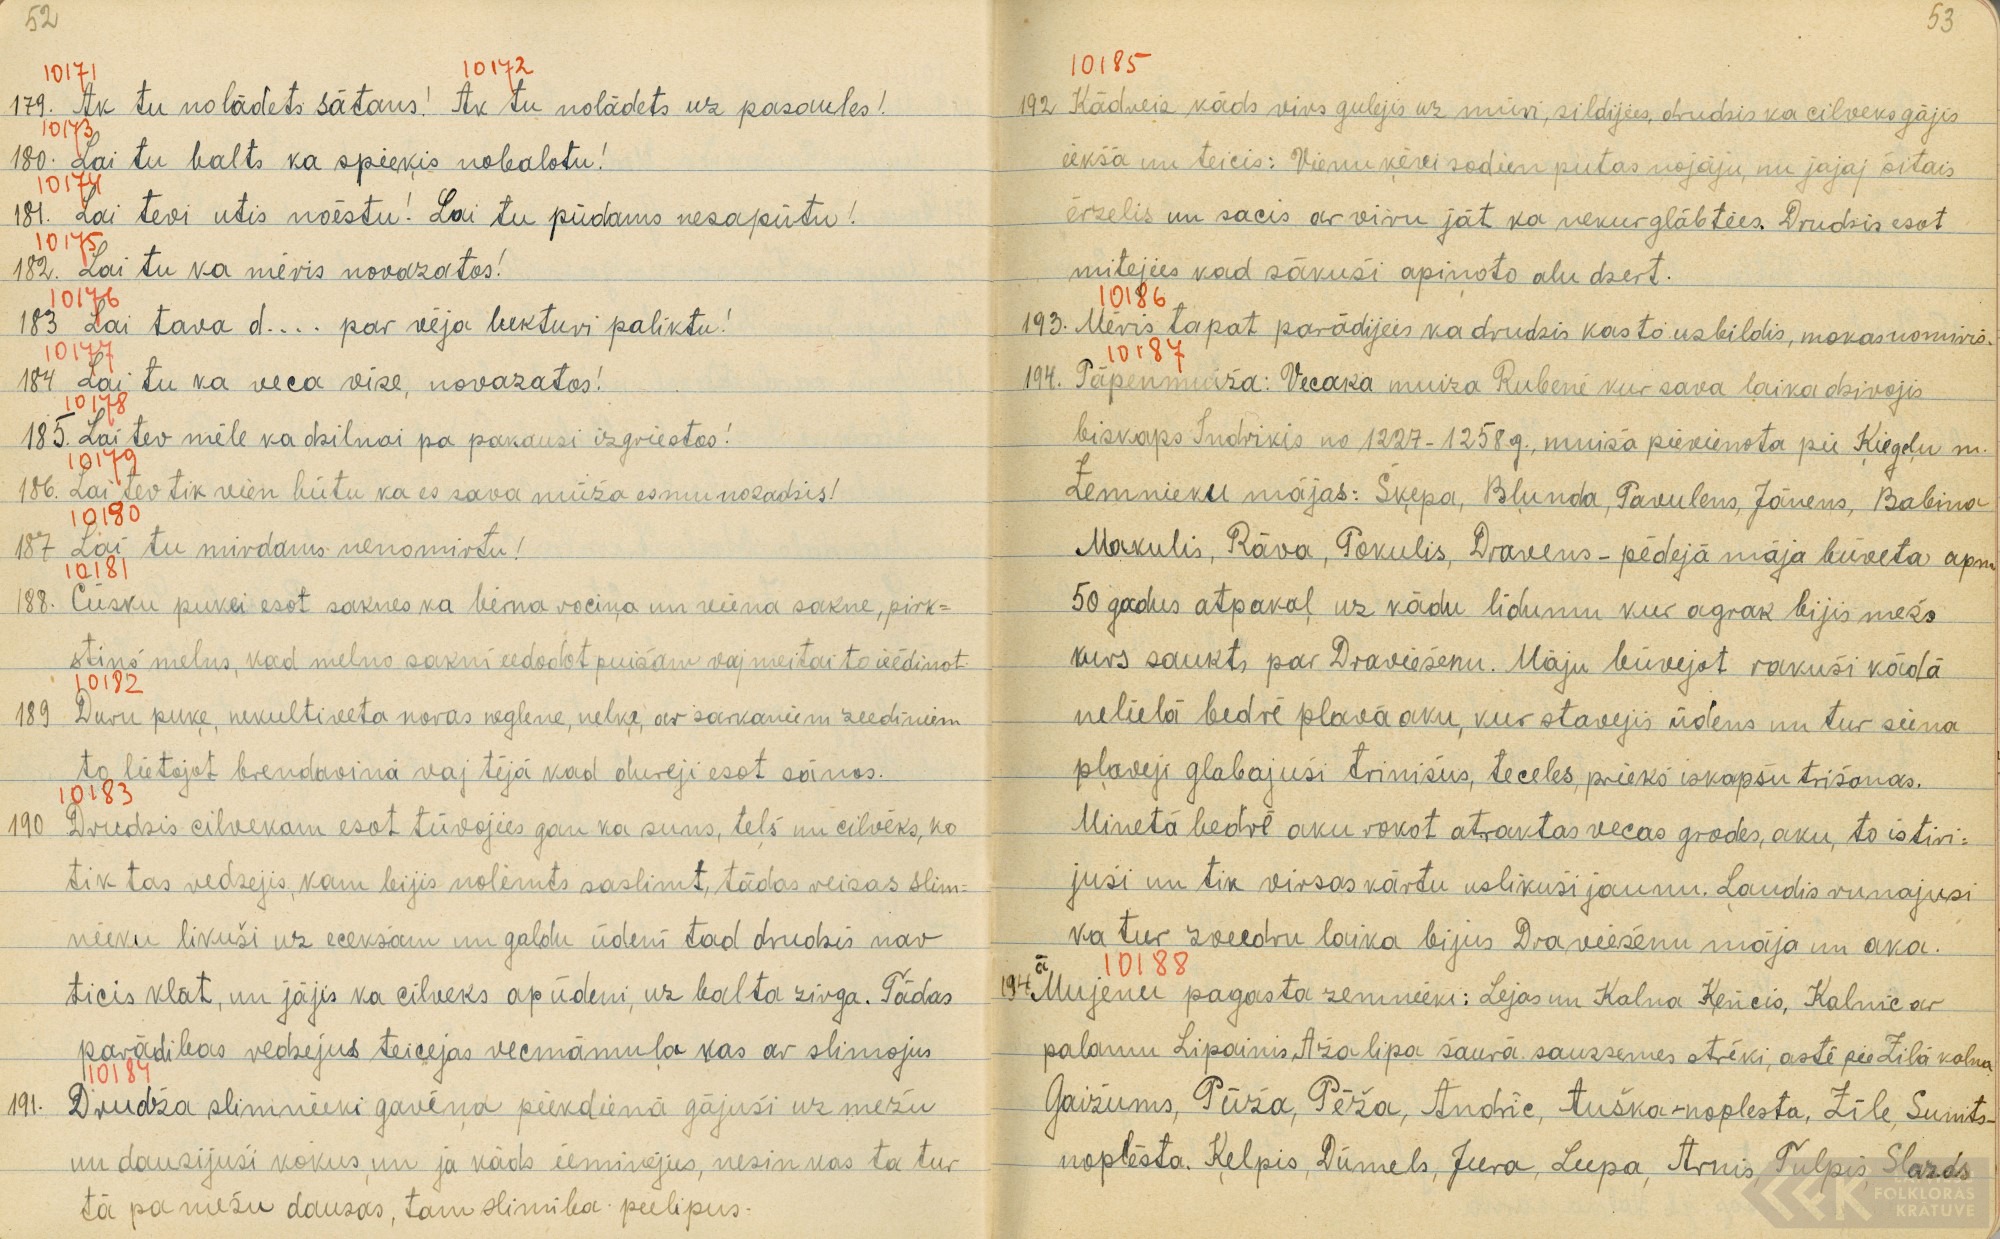 52
10171 10172
179. Ak tu nolādets sātans! Ak tu nolādets uz pasaules!
10173
180. Lai tu balts ka spieķis nobalotu!
10174
181. Lai tevi utis noēstu! Lai tu pūdams nesapūtu!
10175
182. Lai tu ka mēris novazatos!
10176
183 Lai tava d.... par vēja lukturi paliktu!
10177
184 Lai tu ka veca vize, novazatos!
10178
185. Lai tev mēle ka dzilnai pa pakausi izgriestos!
10179
186. Lai tev tik vien būtu ka es sava mūža esmu nozadzis!
10180
187 Lai tu mirdams nenomirtu!
10181
188. Čūsku pukei esot saknes ka bērna rociņa un viena sakne, pirk=
stiņš melns, kad melno sakni eedodot puišam vaj meitai to iēdinot
10182
189 Duru puķe, nekultiveta noras neglene, neļķe, ar sarkaniem zeediniem
to lietojot brendaviná vaj tējā kad dureji esot sānos.
10183
190 Drudzis cilvekam esot tūvojies gan ka suns, teļš un cilvēks, ko
tik tas redzejis, kam bijis nolemts saslimt, tādas reizas slim=
nieku likuši uz ecekšam un galdu ūdenī tad drudzis nav
ticis klāt, un jājis ka cilveks ap ūdeni, uz balta zirga. Tādas
parādibas redzejus teicejas vecmāmuļa kas ar slimojus
10184
191. Drudža slimnieki gavēņa piekdienā gājuši uz mežu
un dauzijuši kokus un ja kāds ieminejus, nesin kas ta tur
tā pa mežu dauzas, tam slimiba peelipus.
53
10185
192 Kādreiz kāds virs gulejis uz mūri, sildijies, drudzis ka cilveks gājis
iekšā un teicis: Vienu ķēvi sodien putas nojāju, nu jajaj šitais
ērzelis un sacis ar viru jāt ka nekur glābties. Drudzis esot
mitejies kad sākuši apiņoto alu dzert.
10186
193. Mēris tapat parādijies ka drudzis kas to uzbildis, mokas nomiris.
10187
194. Pāpenmuiža: Vecaka muiza Rubenē kur sava laika dzivojis
biskaps Indriķis no 1227-1258g., muiša pievienota pie Ķiegeļu m.
Zemnieku mājas: Šķepa, Bļunda, Pavulens, Jānens, Babina
Makulis, Rāva, Pokulis, Dravens - pēdejā māja būveta apm
50 gadus atpakaļ uz kādu lidumu kur agrak bijis mežs
kurs saukts par Draviešenu. Māju būvejot rakuši kādā
nelielā bedrē plavā aku, kur stavejis ūdens un tur siena
pļaveji glabajuši trinišus, teceles, priekš iskapšu trišanas.
Minetā bedrē aku rokot atraktas vecas grodes, aku, to istiri=
juši un tik virsas kārtu uslikuši jaunu. Ļaudis runajusi
ka tur zveedru laika bijus Draviešenu māja un aka.
10188
194.ā Mujenu pagasta zemnieki: Lejas un Kalna Ķencis, Kalnič ar
palamu Lipainis, Aža lipa šaurā sauszemes strēki, astē pie Zilā kalna
Gaižums, Pūža, Pēža, Andrič, Auška-noplesta, Zīle, Sunits-
noplēsta. Ķelpis, Dūmels, Jura, Leepa, Arnis, Tulpis, Slazds
FOLKLORAS
KRATUVE